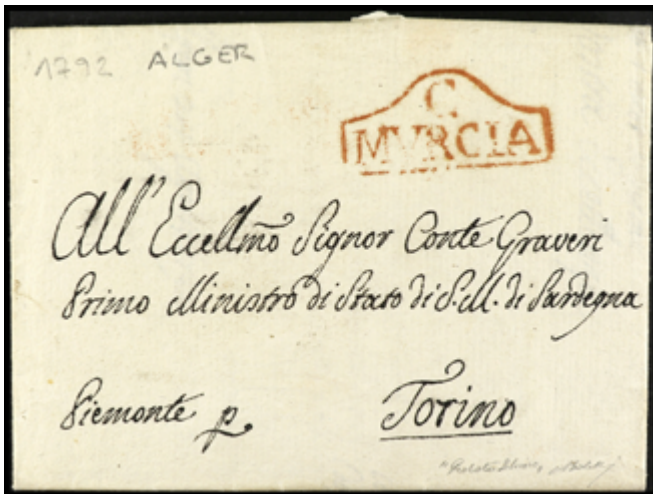 1792 ALGER
C.
MVRCIA
All' Eccellmo Signor Conte Graveri
Primo Ministro di Stato di S. M. di Sardegna
Piemonte p.
Torino